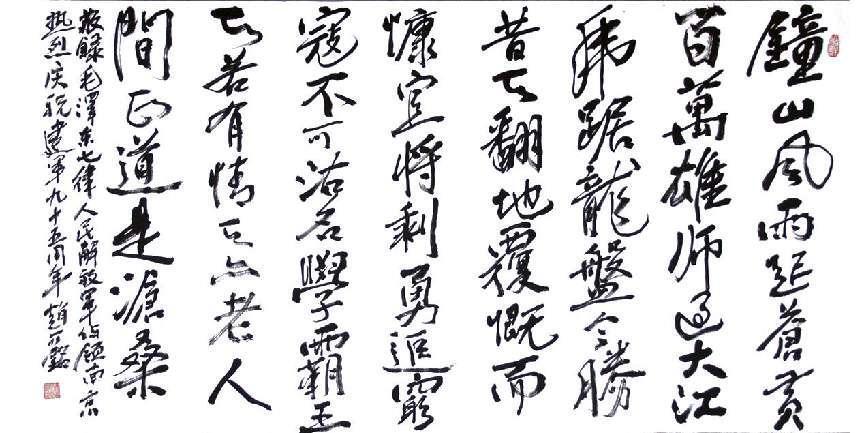 鐘山风雨起蒼黄
百萬雄师过大江
虎踞龍盤今勝
昔天翻地覆慨而
慷宜将剩勇追窮
寇不可沽名學霸王
天若有情天亦老人
間正道是滄桑
敬録毛澤东七律人民解放軍占领南京
热烈庆祝建軍九十五周年趙